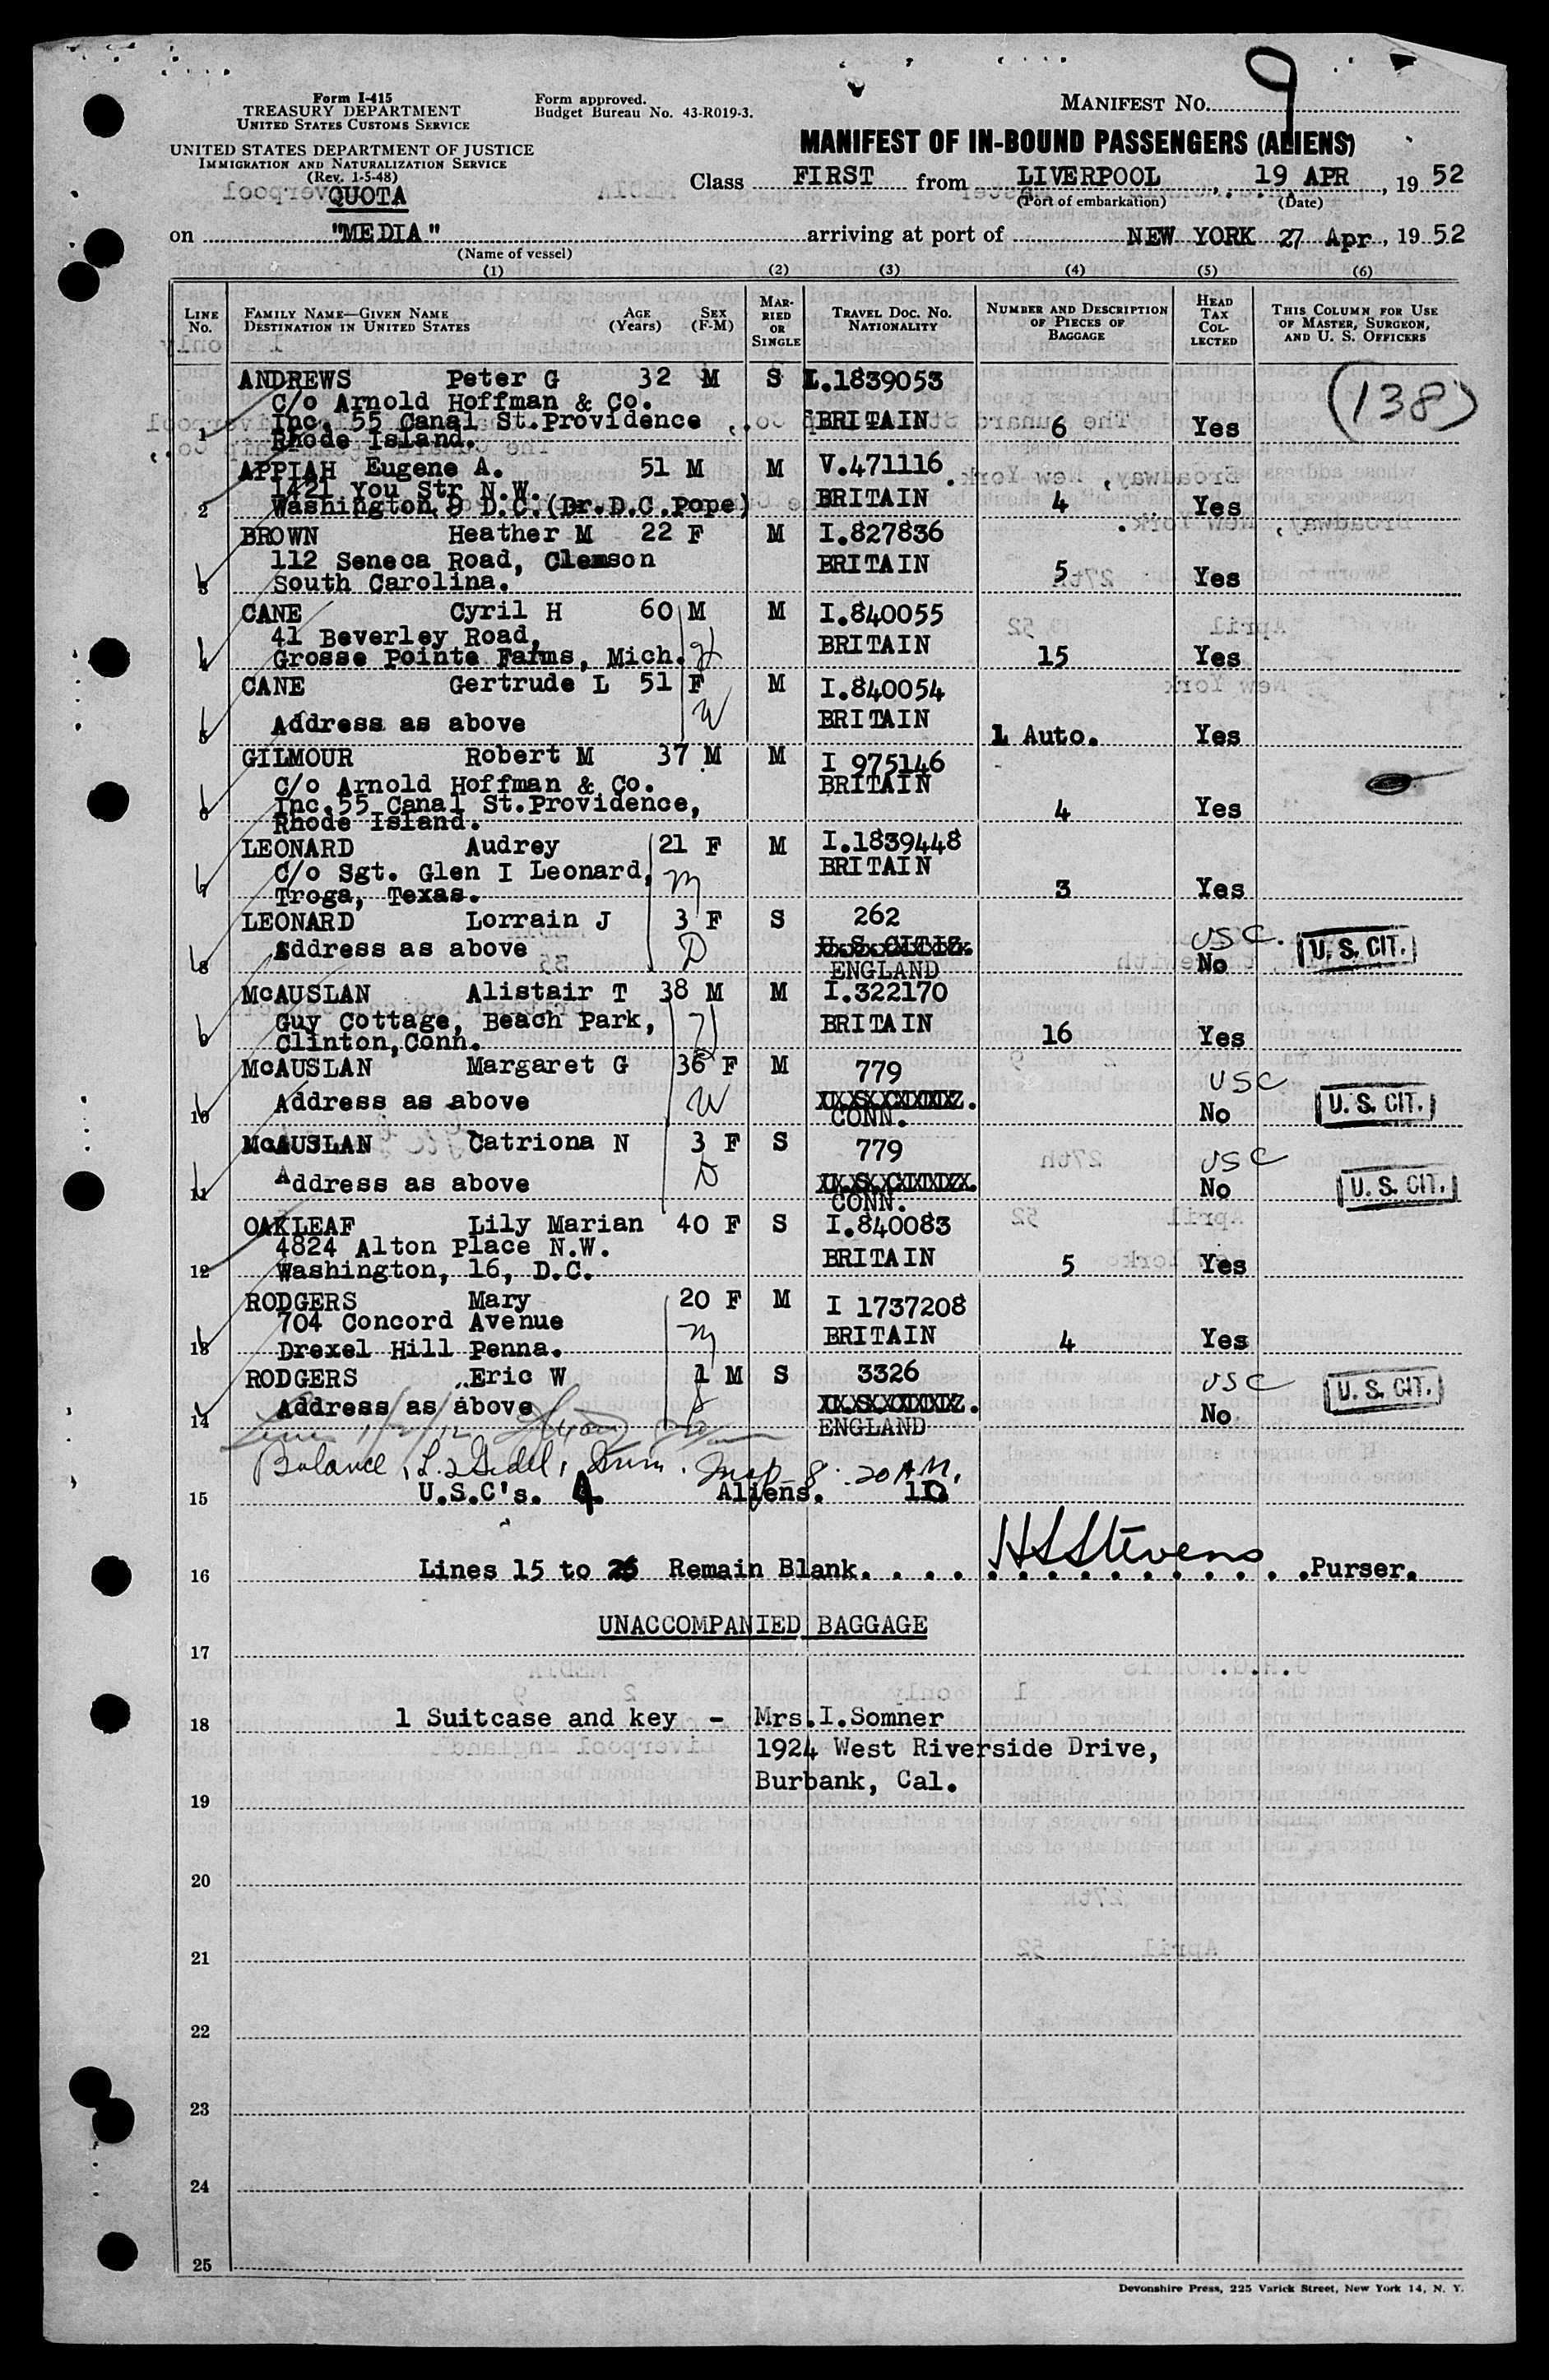 Form I-415
TREASURY DEPARTMENT
UNITED STATES CUSTOMS SERVICE
UNITED STATES DEPARTMENT OF JUSTICE
IMMIGRATION AND NATURALIZATION SERVICE
(Rev. 1-5-48)
QUOTA
Form approved.
Budget Bureau No. 43-R019-3.
MANIFEST NO. 9
MANIFEST OF IN-BOUND PASSENGERS (ALIENS)
Class FIRST from LIVERPOOL, 19 APR, 19 52
(Port of embarkation) (Date)
on "MEDIA" arriving at port of NEW YORK 27 Apr, 19 52
(Name of vessel)
(1) (2) (3) (4) (5) (6)
LINE No. FAMILY NAME—GIVEN NAME DESTINATION IN UNITED STATES AGE (Years) SEX (F-M) MARRIED OR SINGLE TRAVEL DOC. NO. NATIONALITY NUMBER AND DESCRIPTION OF PIECES OF BAGGAGE HEAD TAX COLLECTED THIS COLUMN FOR USE OF MASTER, SURGEON, AND U. S. OFFICERS
ANDREWS Peter G 32 M S I.1839053 (138)
C/o Arnold Hoffman & Co.
1 Inc. 55 Canal St.Providence BRITAIN 6 Yes
Rhode Island.
APPIAH Eugene A. 51 M M V.471116
1421 You Str N.W.
2 Washington, 9 D.C.(Dr.D.C.Pope) BRITAIN 4 Yes
BROWN Heather M 22 F M I.827836
112 Seneca Road, Clemson BRITAIN
3 South Carolina. 5 Yes
CANE Cyril H 60 M M I.840055
41 Beverley Road, BRITAIN
4 Grosse Pointe Farms, Mich. H 15 Yes
CANE Gertrude L 51 F M I.840054
5 Address as above W BRITAIN 1 Auto. Yes
GILMOUR Robert M 37 M M I 975146
C/o Arnold Hoffman & Co. BRITAIN
6 Inc.55 Canal St.Providence, 4 Yes
Rhode Island.
LEONARD Audrey 21 F M I.1839448
C/o Sgt. Glen I Leonard, BRITAIN
7 Troga, Texas. M 3 Yes
LEONARD Lorrain J 3 F S 262
8 Address as above D U.S.CITIZ. USC. No U. S. CIT.
ENGLAND
McAUSLAN Alistair T 38 M M I.322170
Guy Cottage, Beach Park, BRITAIN
9 Clinton,Conn. H 16 Yes
McAUSLAN Margaret G 36 F M 779
10 Address as above W USC No U. S. CIT.
CONN.
McAUSLAN Catriona N 3 F S 779
11 Address as above D USC No U. S. CIT.
CONN.
OAKLEAF Lily Marian 40 F S I.840083
4824 Alton Place N.W. BRITAIN
12 Washington, 16, D.C. 5 Yes
RODGERS Mary 20 F M I 1737208
704 Concord Avenue BRITAIN
13 Drexel Hill Penna. M 4 Yes
RODGERS Eric W 1 M S 3326
14 Address as above S USC No U. S. CIT.
ENGLAND
Balance, Insp. 8:20 AM.
15 U.S.C's. 4 Aliens. 10
16 Lines 15 to 25 Remain Blank. HSStevens Purser.
UNACCOMPANIED BAGGAGE
17
18 1 Suitcase and key - Mrs.I.Somner
1924 West Riverside Drive,
19 Burbank, Cal.
20
21
22
23
24
25
Devonshire Press, 225 Varick Street, New York 14, N. Y.